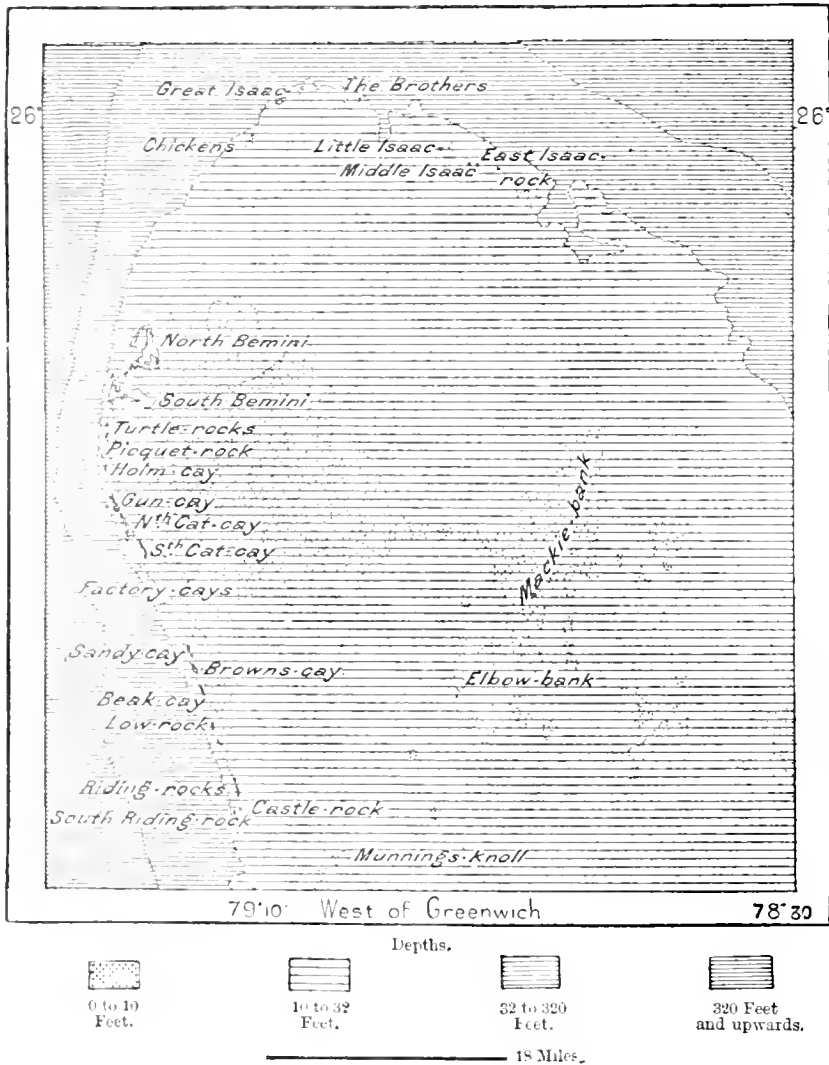 Great Isaac
The Brothers
26°
26°
Chickens
Little Isaac
East Isaac
Middle Isaac
rock
North Bemini
South Bemini
Turtle-rocks
Picquet-rock
Holm-cay
Gun-cay
Nth Cat-cay
Sth Cat-cay
Mackie-bank
Factory-cays
Sandy-cay
Browns-cay
Elbow-bank
Beak-cay
Low-rock
Riding-rocks
Castle-rock
South Riding-rock
Munnings-Knoll
79°10' West of Greenwich 78°30
Depths.
0 to 10
Feet.
10 to 32
Feet.
32 to 320
Feet.
320 Feet
and upwards.
18 Miles.